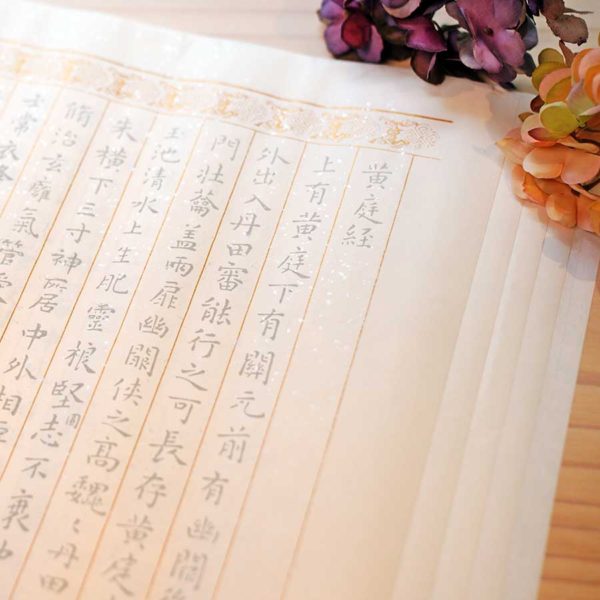 黄庭経
上有黄庭下有關元前有幽闕
外出入丹田審能行之可長存黄庭
門壮蘥盖兩扉幽闕侠之高巍〻丹田
玉池清水上生肥靈根堅固志不衰中
朱横下三寸神所居中外相距
脩治玄廱氣管受
士常衣